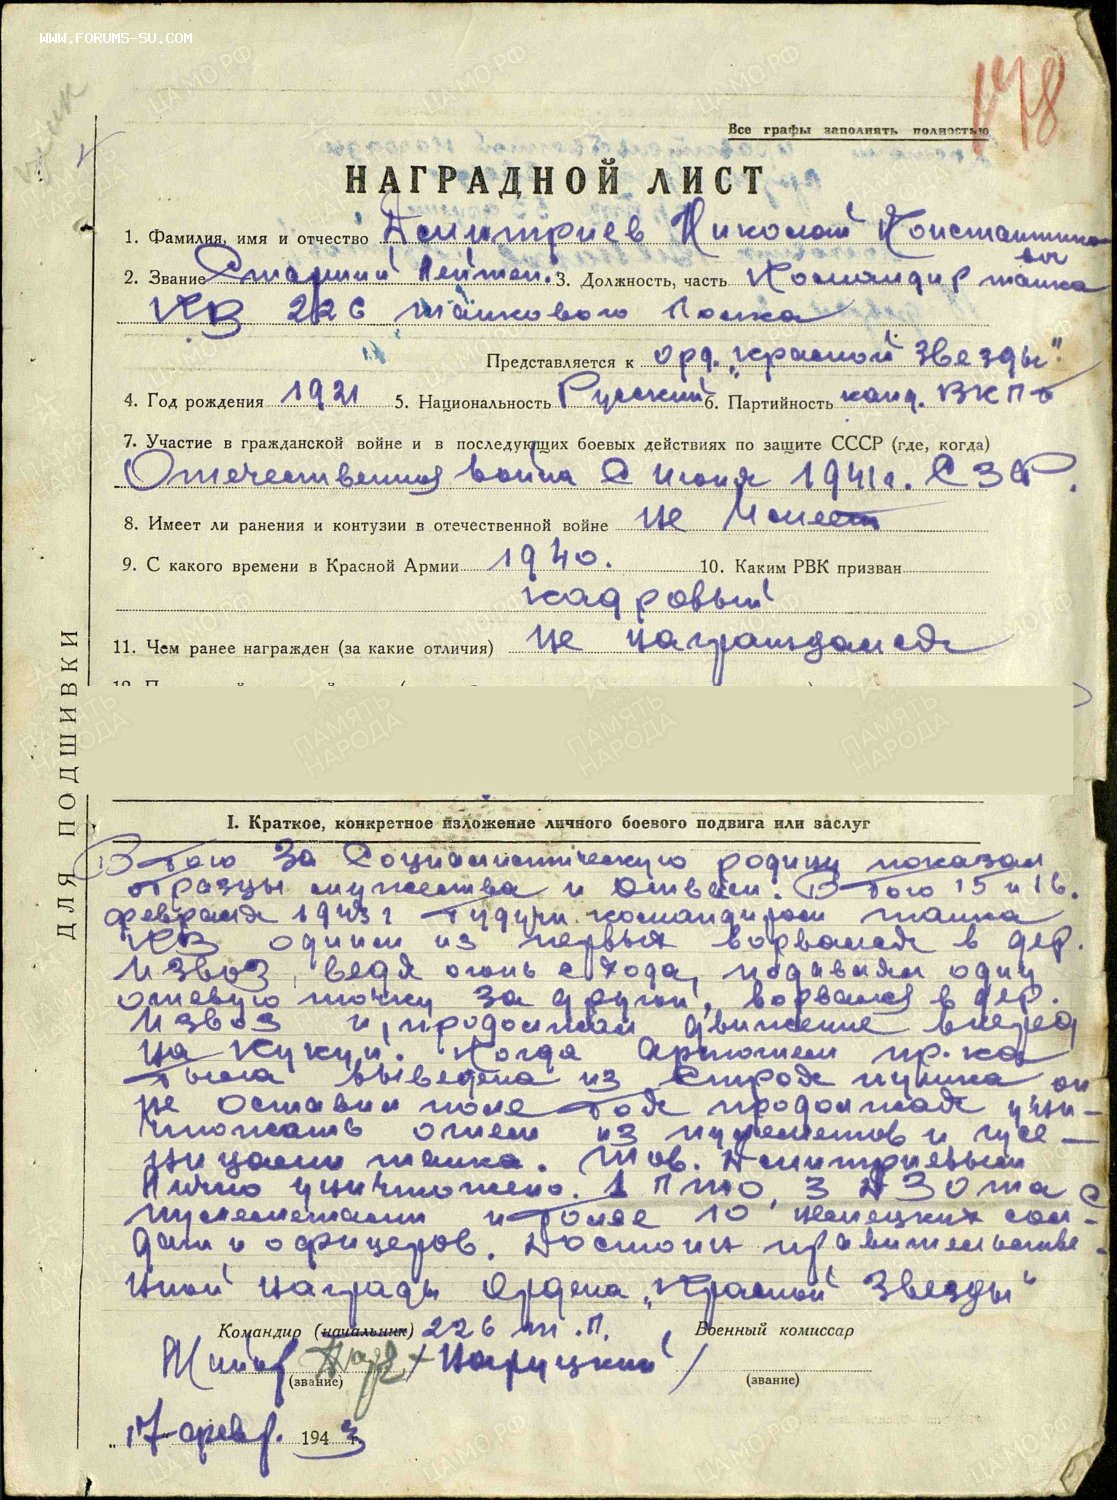 WWW.FORUMS-SU.COM
178
Все графы заполнять полностью
НАГРАДНОЙ ЛИСТ
1. Фамилия, имя и отчество Дмитриев Николай Константинович
2. Звание Старший Лейтен. 3. Должность, часть Командир танка
КВ 226 танкового Полка
Представляется к орд. „Красной Звезды".
4. Год рождения 1921 5. Национальность Русский 6. Партийность канд. ВКПб
7. Участие в гражданской войне и в последующих боевых действиях по защите СССР (где, когда)
Отечественная война с июня 1941г. СЗФ.
8. Имеет ли ранения и контузии в отечественной войне не имеет
9. С какого времени в Красной Армии 1940. 10. Каким РВК призван
кадровый
11. Чем ранее награжден (за какие отличия) не награждался
ПАМЯТЬ НАРОДА
ДЛЯ ПОДШИВКИ
I. Краткое, конкретное изложение личного боевого подвига или заслуг
В бою за Социалистическую родину показал
образцы мужества и отваги. В бою 15 и 16.
февраля 1943г будучи командиром танка
КВ одним из первых ворвался в дер.
Извоз, ведя огонь с хода, подавляя одну
огневую точку за другой, ворвался в дер.
Извоз и, продолжая движение вперед
на Кукуй. Когда пр-ка
была выведена из строя пушка он
не оставил поле боя продолжая уни-
чтожать огнем из пулеметов и гусе-
ницами танка. Тов. Дмитриевым
Лично уничтожено. 1 ПТО, 3 ДЗОТа с
пулеметами и более 10 немецких сол-
дат и офицеров. Достоин правительстве-
нной награды Ордена „Красной Звезды"
Командир (начальник) 226 т.п. Военный комиссар
Майор /Нарицкий/
(звание) (звание)
„17 февр. 1943 г.